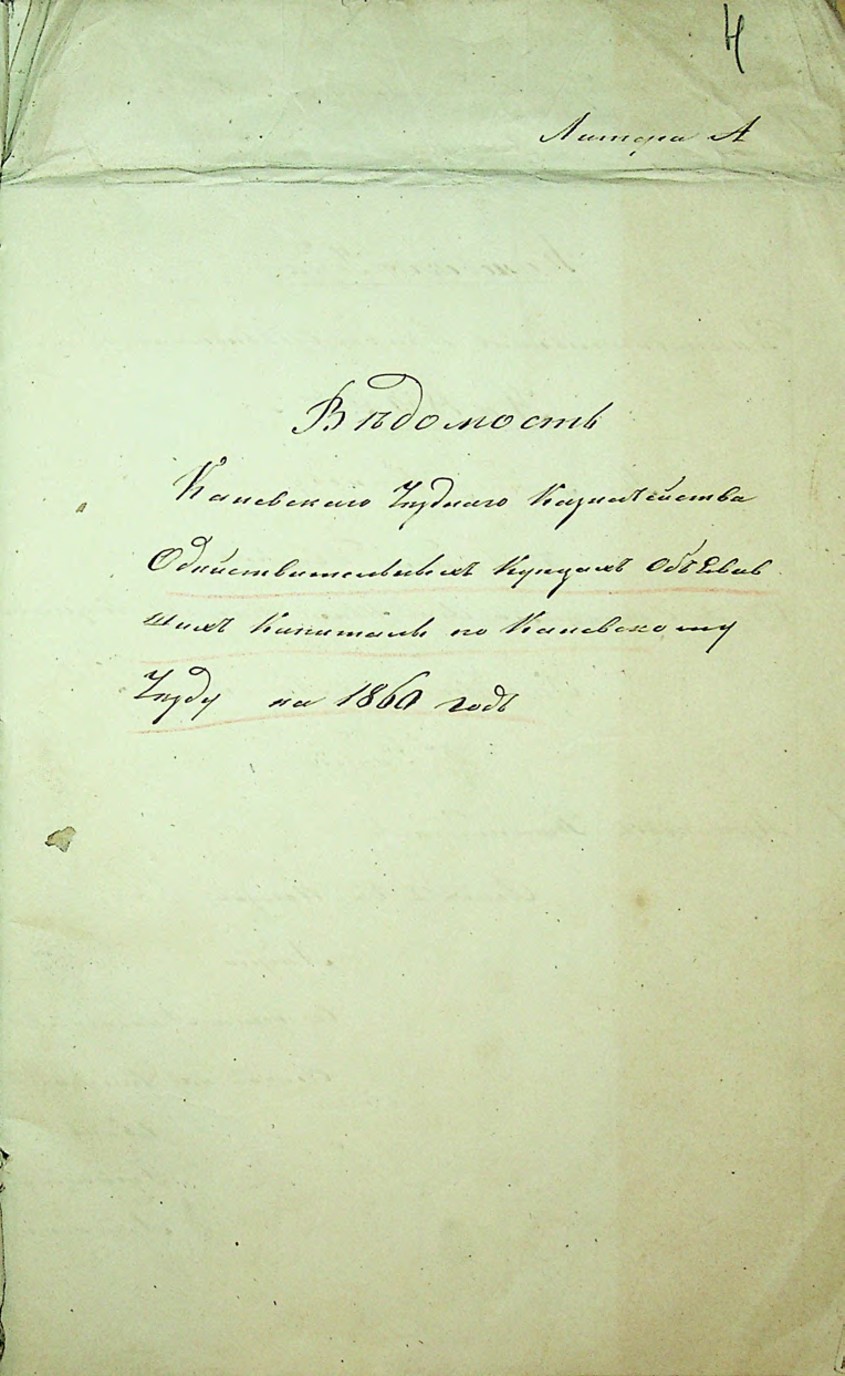 4
Литера А
Вѣдомость
Каневскаго Уезднаго Казначейства
О действительныхъ Купцахъ Объявив
шихъ Капиталы по Каневскому
Уезду на 1860 годъ